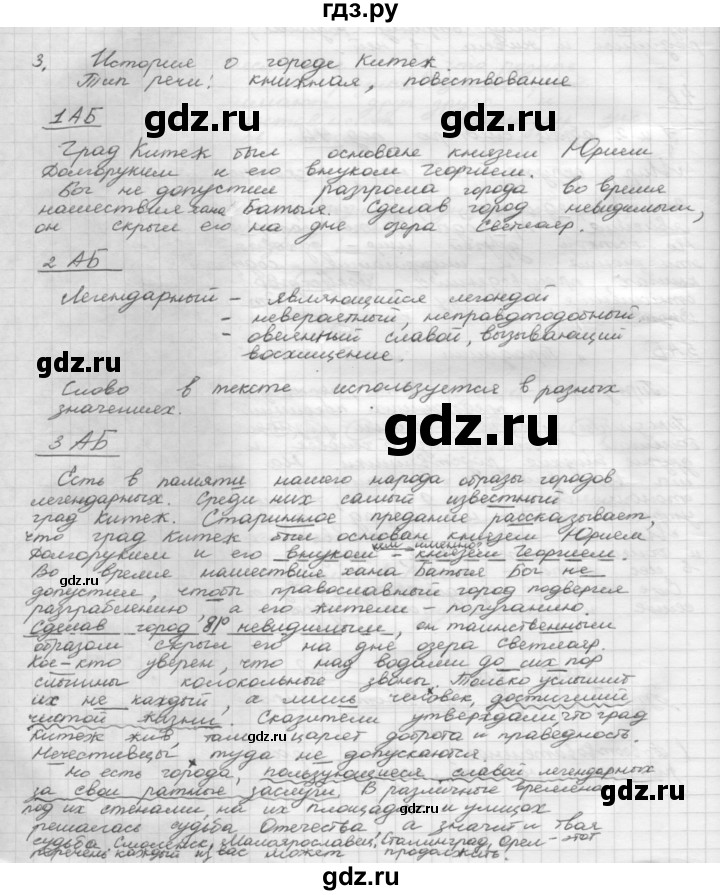 гдз.ру
3. История о городе Китеж.
Тип речи: книжная, повествование
1 АБ
gdz.ru gdz.ru
Град Китеж был основан князем Юрием
Долгоруким и его внуком Георгием.
Бог не допустил разгрома города во время
нашествия хана Батыя. Сделав город невидимым,
он скрыл его на дне озера Светлояр.
2 АБ
gdz.ru
Легендарный - являющийся легендой
- невероятный, неправдоподобный
- овеянный славой, вызывающий
восхищение.
gdz.ru
Слово в тексте используется в разных
значениях.
gdz.ru
3 АБ
Есть в памяти нашего народа образы городов
легендарных. Среди них самый известный
град Китеж. Старинное предание рассказывает,
gdz.ru
что град Китеж был основан князем Юрием
Долгоруким и его внуком - князем Георгием.
Во время нашествия хана Батыя Бог не
gdz.ru
допустил, чтобы православный город подвергся
разграблению, а его жители - поруганию.
Сделав город д/о невидимым, он таинственным
образом скрыл его на дне озера Светлояр.
Кое-кто уверен, что над водами до сих пор
gdz.ru
слышны колокольные звоны. Только услышит
их не каждый, а лишь человек, достигший
чистой жизни. Сказители утверждали, что град
Китеж жив, там царяет доброта и праведность.
gdz.ru
Нечестивцы туда не допускаются.
Но есть города, пользующиеся славой легендарных
за свои ратные заслуги. В различные времена
gdz.ru
под их стенами, на их площадях и улицах
решалась судьба Отечества, а значит и твоя
судьба. Смоленск, Малоярославец, Сталинград, Орел - этот
перечень каждый из вас может продолжить.
gdz.ru